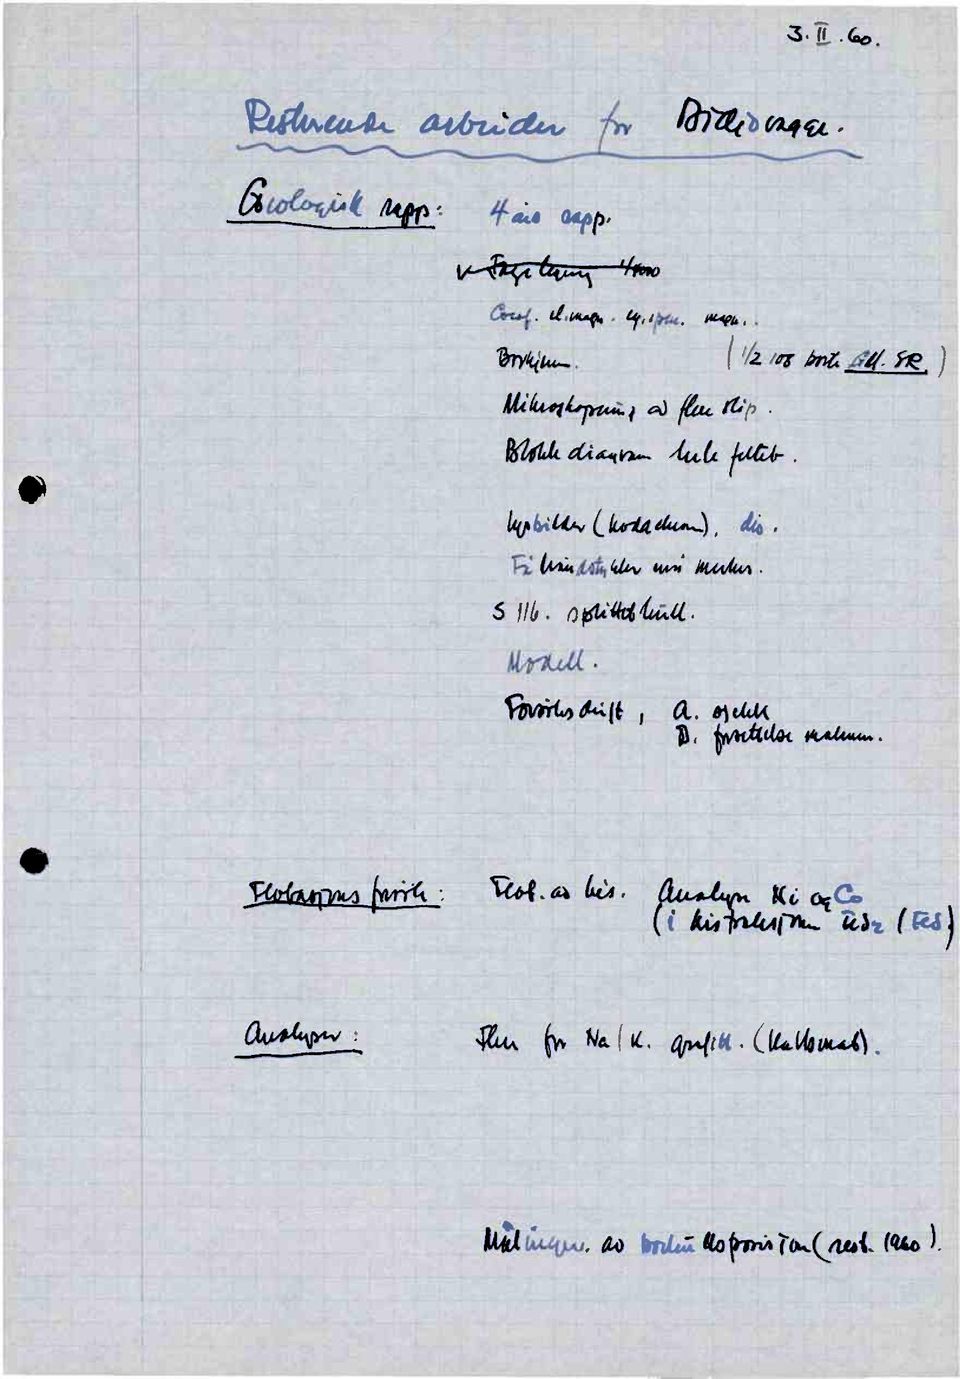 3.II.60.
Resterende arbeider for Bidjovagge.
Geologisk rapp: 4 års rapp.
Dagskjæring 1/1000
Geof. el.magn. og magn.
Borkjerner. (1/2 108 bort Gll. SR.)
Mikroskopering av flere slip.
Blokk diagram hele feltet.
lysbilder (kodachrom), dis.
Få håndstykker mrk.
S 116. splittet hull.
Modell.
Forsøksdrift, A.
B. fortsettelse malmen.
Flotasjons forsøk: Flot. av kis. Analyse Ni og Co
(i kisfraksjon FeS2 (FeS)
Analyser: Flere for Na/K. grafitt. (Karbonat).
Målingene av borhullsposisjon (rest. 1960).